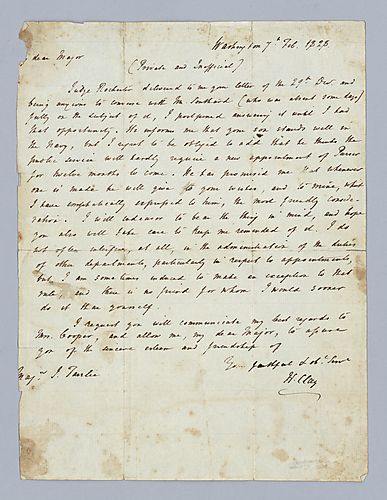 Washington 7th Feb. 1828
My dear Major
(Private and Inofficial)
Judge Rochester delivered to me your letter of the 29th Dec. and
being anxious to converse with Mr Southard (who was absent some days)
fully on the subject of it, I postponed answering it until I had
that opportunity. He informs me that your son stands well in
the Navy, but I regret to be obliged to add that he thinks the
public service will hardly require a new appointment of Purser
for twelve months to come. He has promised me that whenever
one is made he will give to your wishes, and to mine, which
I have emphatically expressed to him, the most friendly conside-
ration. I will endeavor to bear the thing in mind, and hope
you also will take care to keep me reminded of it. I do
not often interfere, at all, in the administration of the duties
of other departments, particularly in respect to appointments,
but I am sometimes induced to make an exception to that
rule, and there is no friend for whom I would sooner
do it than yourself.
I request you will communicate my best regards to
Mrs. Cooper, and allow me, my dear Major, to assure
you of the sincere esteem and friendship of
Yr faithful & obt. Servt
Majr. J. Fairlie
H. Clay